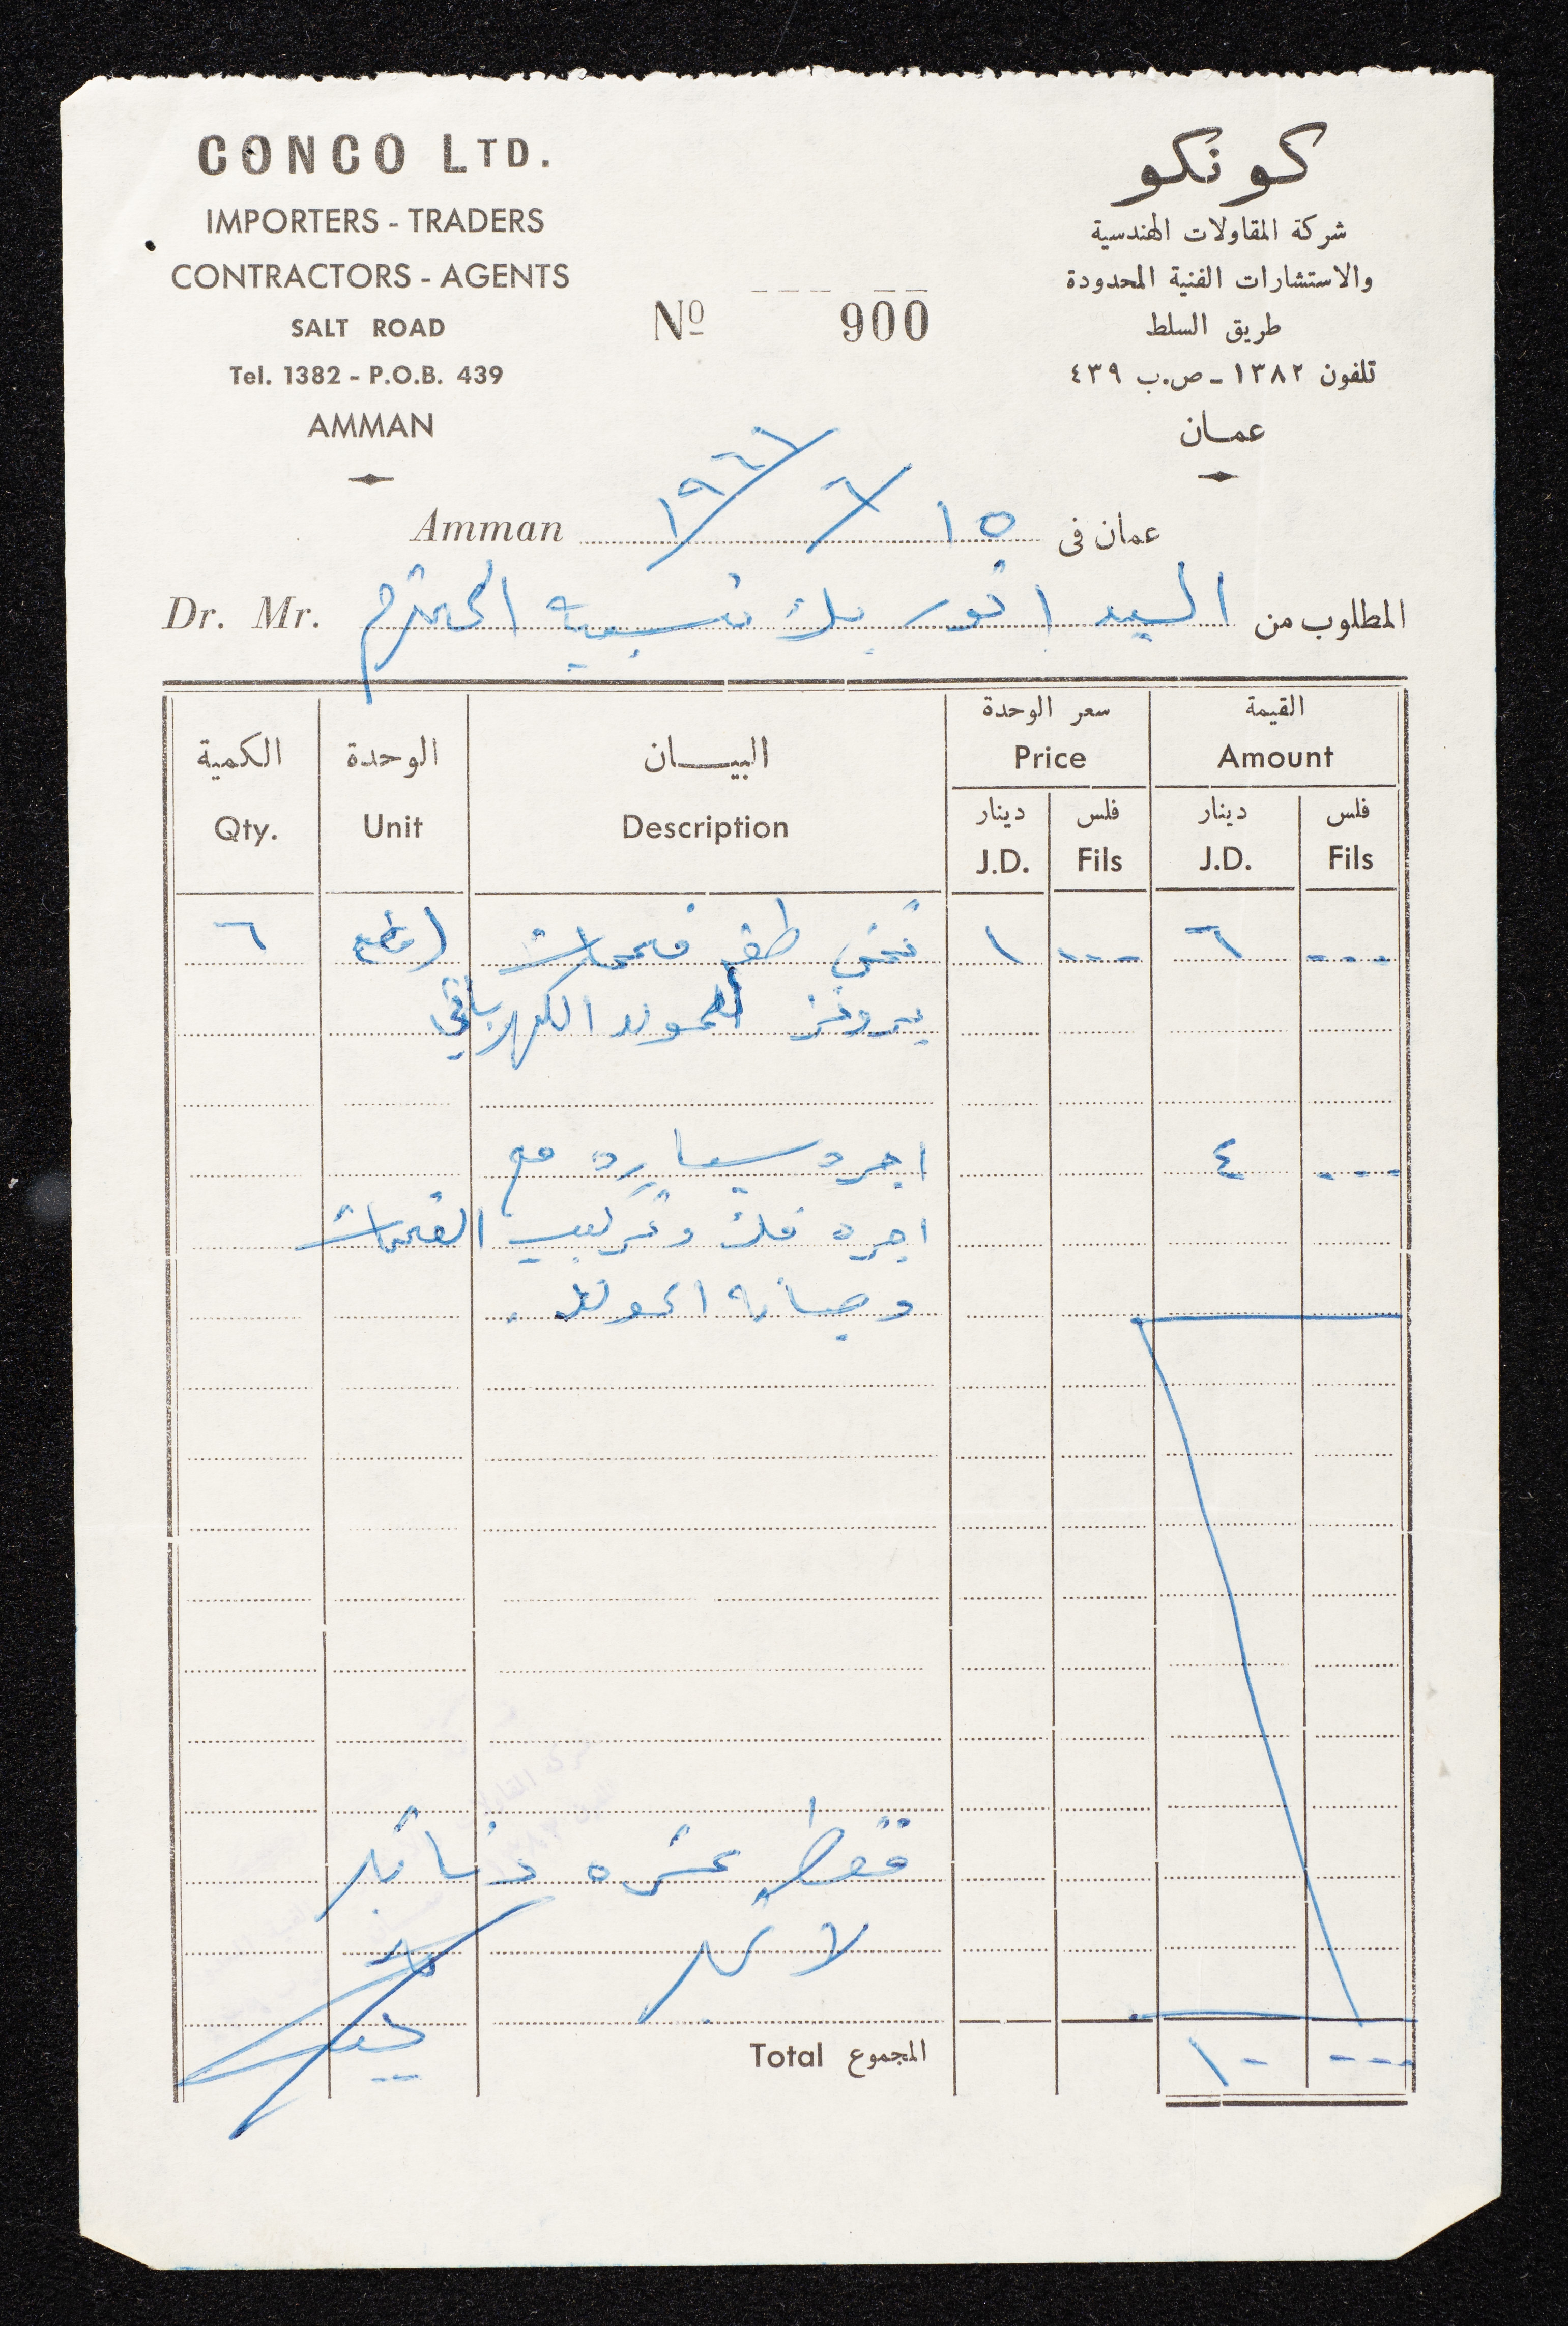 CONCO LTD.
IMPORTERS - TRADERS
CONTRACTORS - AGENTS
SALT ROAD
Tel. 1382 - P.O.B. 439
AMMAN
كونكو
شركة المقاولات الهندسية
والاستشارات الفنية المحدودة
طريق السلط
تلفون ١٣٨٢ - ص.ب ٤٣٩
عمان
Nº 900
Amman ١٥ / ٦ / ١٩٦١ عمان فى
Dr. Mr. السيد انور بك نسيبه المحترم المطلوب من
الكمية الوحدة البيان سعر الوحدة القيمة
Qty. Unit Description Price Amount
دينار فلس دينار فلس
J.D. Fils J.D. Fils
٦ ثمن طقم فحمات ١ ٠٠٠ ٦ ٠٠٠
للمولد الكهربائي
اجرة سياره مع ٤ ٠٠٠
اجره فك وتركيب الفحمات
وصيانه المولد .
فقط عشره دنانير
لا غير
Total المجموع ١٠ ٠٠٠